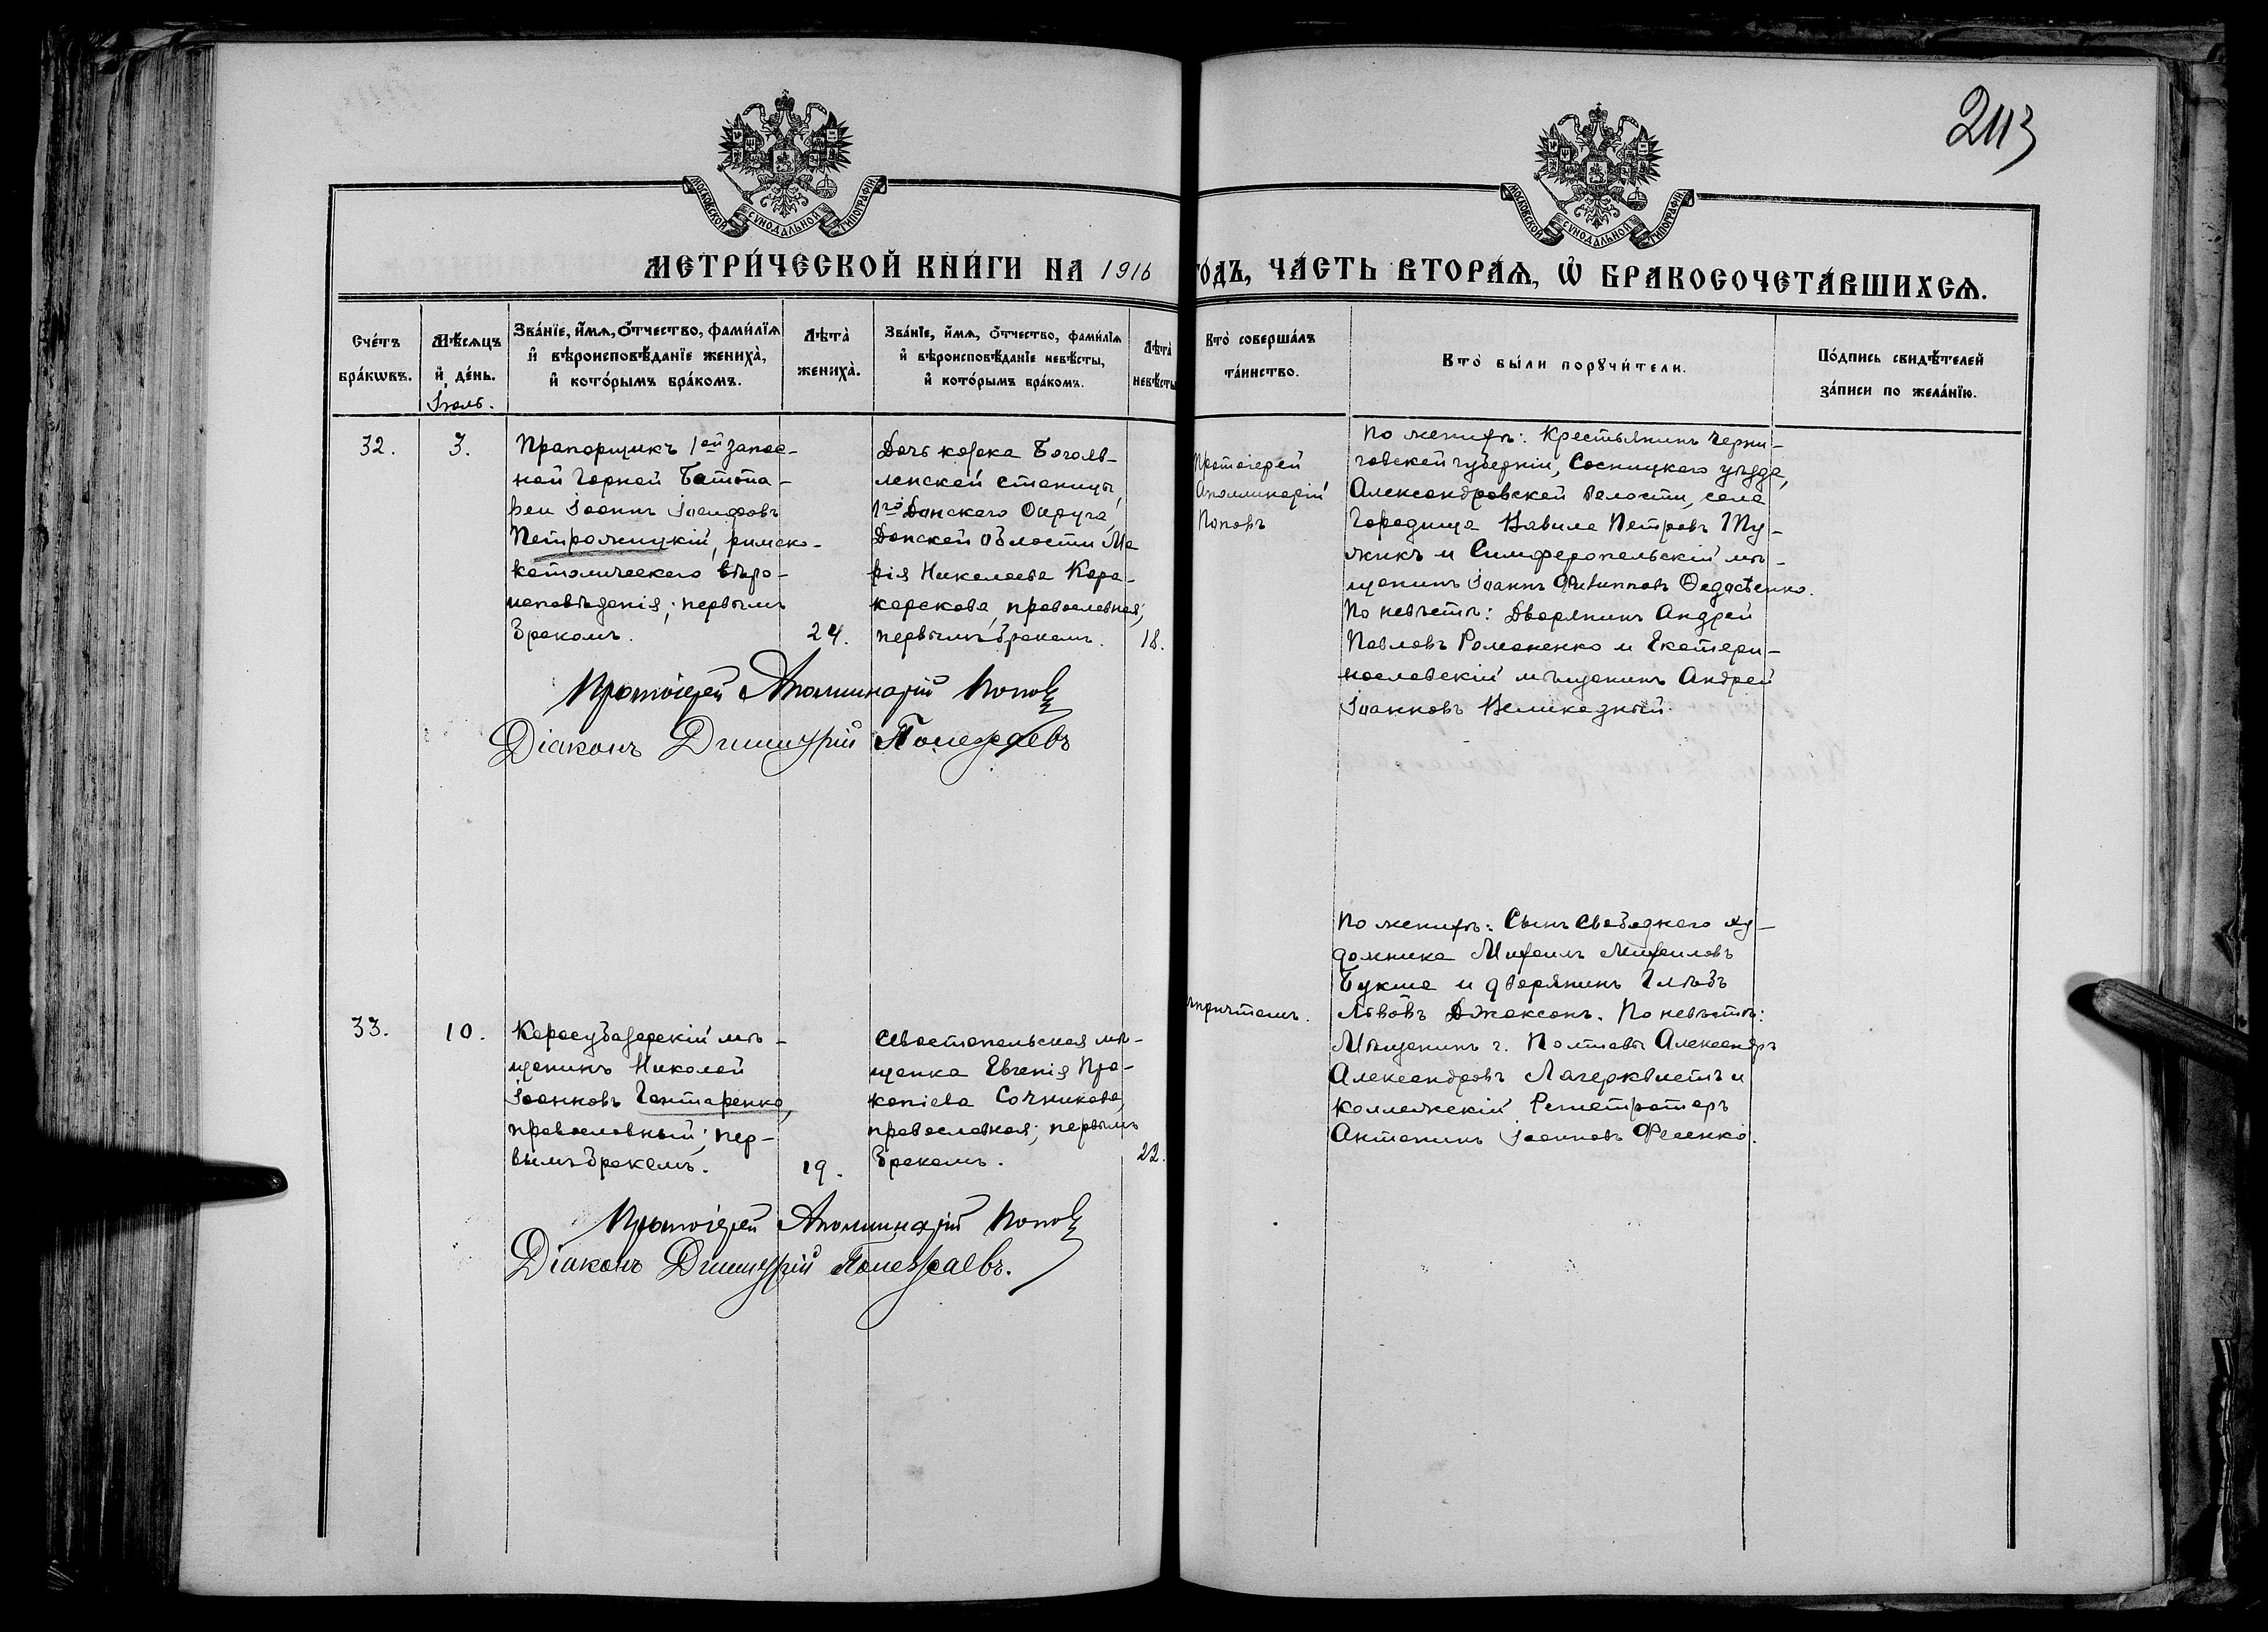 2113
МОСКОВСКОЙ СУНОДАЛЬНОЙ ТИПОГРАФІИ
МОСКОВСКОЙ СУНОДАЛЬНОЙ ТИПОГРАФІИ
МЕТРИ́ЧЕСКОЙ КНИ́ГИ НА 1916 ГОДЪ, ЧА́СТЬ ВТОРА́Ѧ, Ѽ БРАКОСОЧЕТА́ВШИХСѦ.
Сче́тъ бра́кѡвъ.
Мѣ́сѧцъ и҆ де́нь.
Іюль.
Зва́нїе, и҆́мѧ, ѻ҆́тчество, фами́лїѧ и҆ вѣроисповѣ́данїе жениха̀, и҆ кото́рымъ бра́комъ.
Лѣ́та̀ жениха̀.
Зва́нїе, и҆́мѧ, ѻ҆́тчество, фами́лїѧ и҆ вѣроисповѣ́данїе невѣ́сты, и҆ кото́рымъ бра́комъ.
Лѣ́та̀ невѣ́сты
Кто̀ соверша́лъ та́инство.
Кто̀ бы́ли порꙋчи́тели.
По́дпись свидѣ́телей за́писи по жела́нїю.
32.
3.
Прапорщикъ 1ой запас-
ной Горной Батта-
реи Іоаннъ Іосифовъ
Петрожицкій, римско-
католическаго вѣро-
исповѣданія; первымъ
бракомъ.
24.
Дочь козака Боголв-
ленской станицы,
1го Донского Округа,
Донской области Ма
рія Николаева Кара-
карскова, православная;
первымъ бракомъ.
18.
Протоіерей
Аполлинарій
Поповъ
По женихѣ: Крестьянинъ Черни-
говской губерніи, Сосницкаго уѣзда,
Александровской волости, села
Городища Вавила Петровъ Пу-
жикъ и Симферопольскій мѣ-
щанинъ Іоаннъ Филипповъ Федосѣенко.
По невѣстѣ: Дворянинъ Андрей
Павловъ Романенко и Екатери-
нославскій мѣщанинъ Андрей
Іоанновъ Великодный.
Протоіерей Аполлинарій Поповъ
Діаконъ Димитрій Полежаевъ
33.
10.
Карасубазарскій мѣ-
щанинъ Николай
Іоанновъ Гонтаренко,
православный; пер-
вымъ бракомъ.
19.
Севастопольская мѣ-
щанка Евгенія Про-
копіева Сочникова,
православная; первымъ
бракомъ.
22.
причтомъ.
По женихѣ: Сынъ свободнаго ху-
дожника Михаилъ Михаиловъ
Букша и дворянинъ Глѣбъ
Львовъ Джаксонъ. По невѣстѣ:
Мѣщанинъ г. Полтавы Александръ
Александровъ Лагерквистъ и
Коллежскій Регистраторъ
Антонинъ Іоанновъ Фесенко.
Протоіерей Аполлинарій Поповъ
Діаконъ Димитрій Полежаевъ.